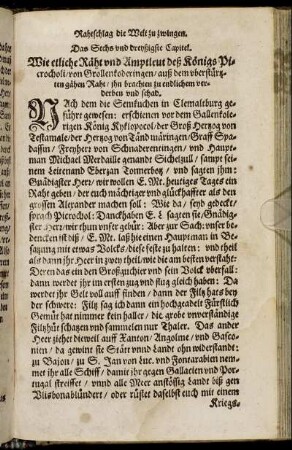 Rahtschlag die Welt zu zwingen.
Das Sechs vnd dreyssigste Capitel.
Wie etliche Räht vnd Amptleut deß Königs Pi-
crocholi / von Grollenkoderingen / auß dem vberstürtz-
ten gähen Raht / jhn brachten zu endlichem ver-
derben vnd schad.
NAch dem die Semkuchen in Clemaltburg ge-
führt gewesen: erschienen vor dem Gallenkole-
rigen König Kyklopocol / der Groß Hertzog von
Testamale / der Hertzog von Tand wäringen / Graff Spa-
dassin / Freyherr von Schnaderentingen / vnd Haupt-
man Michael Merdaille genandt Sichelzull / sampt seinem
Leitenand Eberzan Tonnerboz / vnd sagten jhm:
Gnädigster Herr / wir wollen E. Mt. heutiges Tages ein
Raht geben / der euch mächtiger vnd glückhaffter als den
grossen Alexander machen soll: Wie da / seyd gedeckt /
sprach Picrochol: Danck haben E. L. sagten sie / Gnädig-
ster Herr / wir thun vnser gebür: Aber zur Sach: vnser be-
dencken ist diß / E. Mt. laß hie einen Hauptman in Be-
satzung mit etwas Volcks / dieß feste zu halten: vnd theil
als dann jhr Heer in zwey theil / wie die am besten verstaht:
Deren das ein den Großguchier vnd sein Volck vberfall:
dann werdet jhr im ersten zug vnd flug gleich haben: Da
werdet jhr Gelt voll auff finden / dann der Filtz hats bey
der schwere: Filtz sag ich dann ein hochgeadelt Fürstlich
Gemüt hat nimmer kein haller / die grobe vnverständige
Filtzhüt schatzen vnd sammelen nur Thaler. Das ander
Heer ziehet dieweil auff Xanton / Angolme / vnd Gasco-
nien / da gewint sie Stätt vnnd Landt ohn widerstandt:
zu Bajon / zu S. Jan von Luc vnd Fontarabien nem-
met jhr alle Schiff / damit jhr gegen Gallacien vnd Por-
tugal streiffet / vnnd alle Meer anstössig Land biß gen
Vlisbona blündert / oder rüstet daselbst euch mit einem
Kriegs-